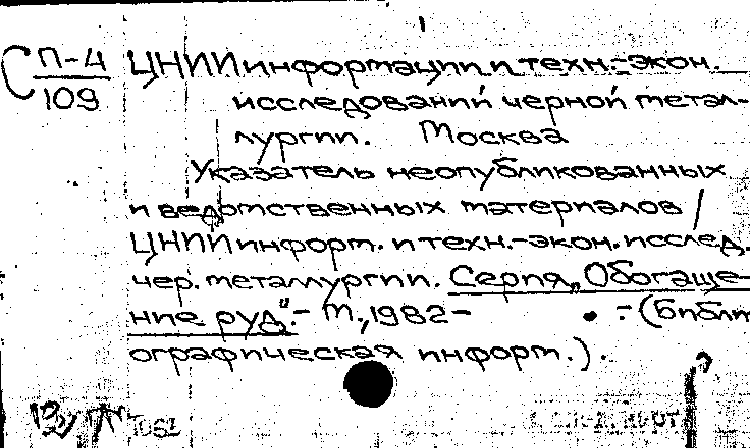 С П-4 ЦНИИ информации и техн.-экон.
109 исследований черной метал-
лургии. Москва
Указатель неопубликованных
и ведомственных материалов /
ЦНИИ информ. и техн.-экон. исслед.
чер. металлургии. Серия „Обогаще-
ние руд".- М., 1982- .-(Библи
ографическая информ.).